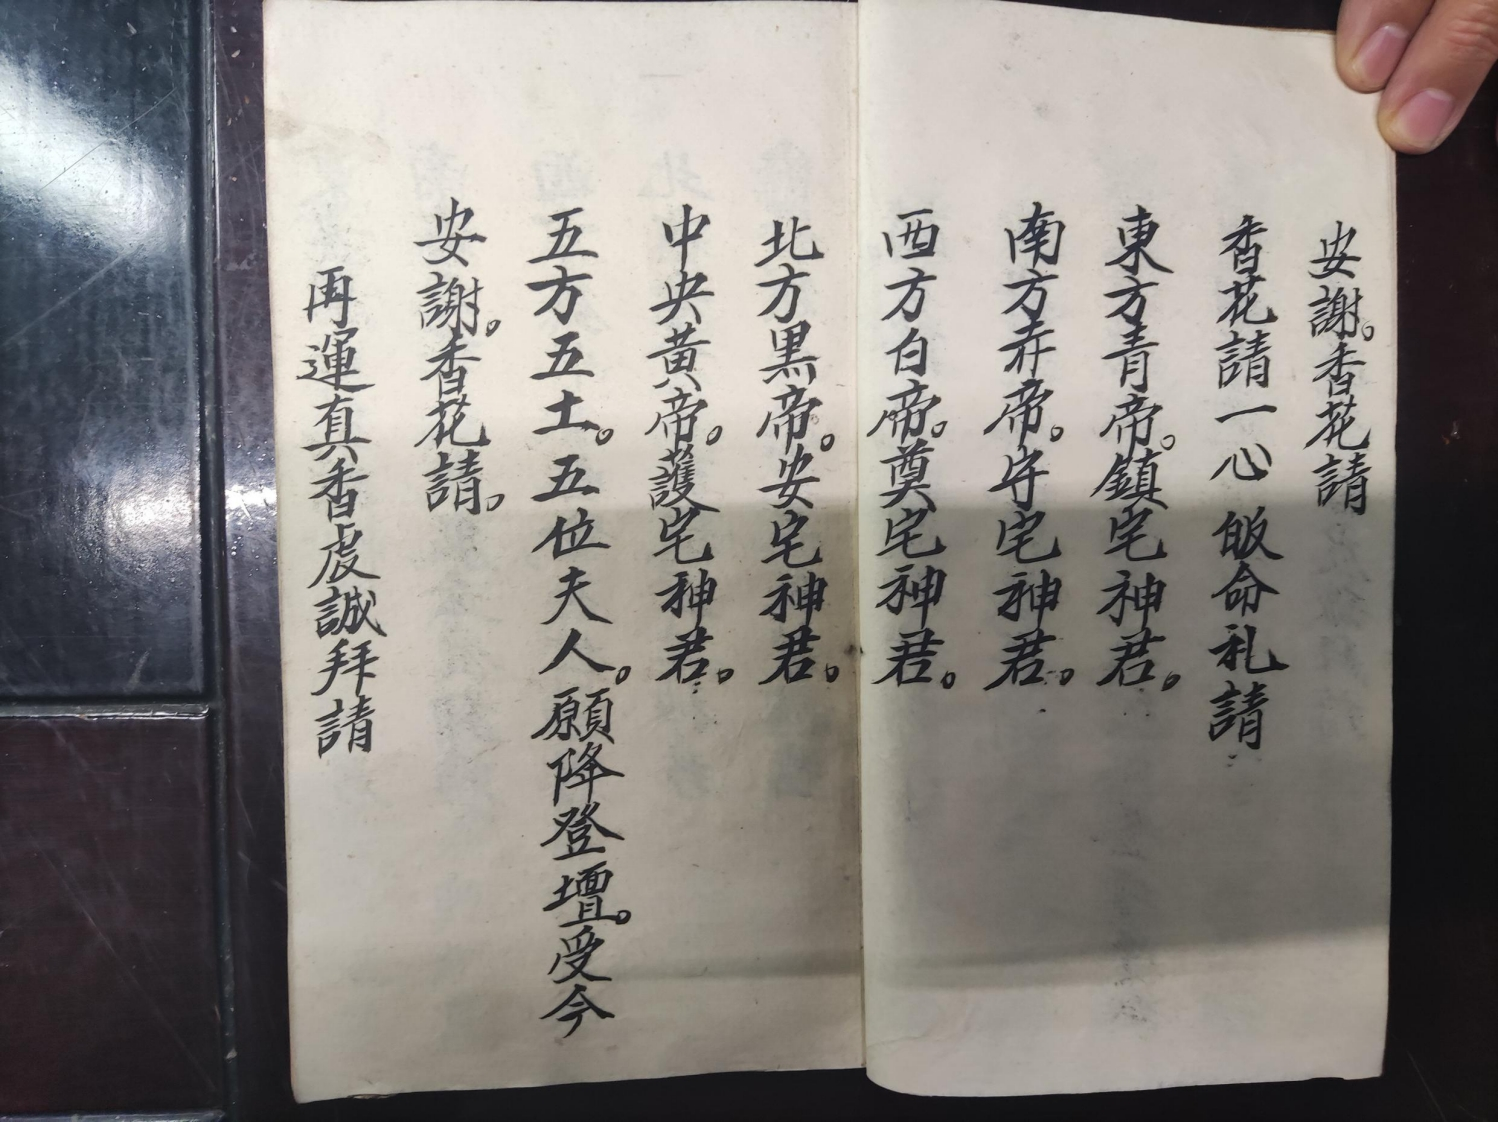 安謝。香花請
香花請一心皈命礼請
東方青帝。鎮宅神君。
南方赤帝。守宅神君。
西方白帝。奠宅神君。
北方黑帝。安宅神君。
中央黃帝。護宅神君。
五方五土。五位夫人。願降登壇。受今
安謝。香花請。
再運真香虔誠拜請